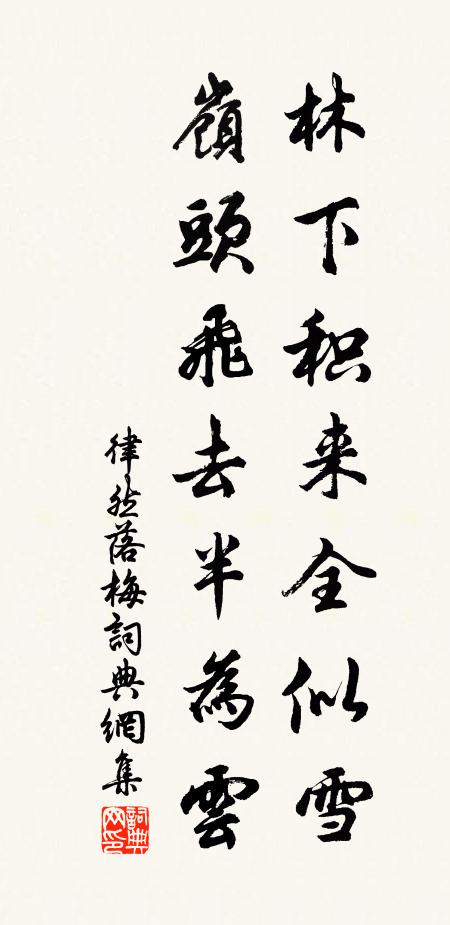 林下积来全似雪
嶺頭飛去半為雲
律然落梅詞典網集
詞典网印